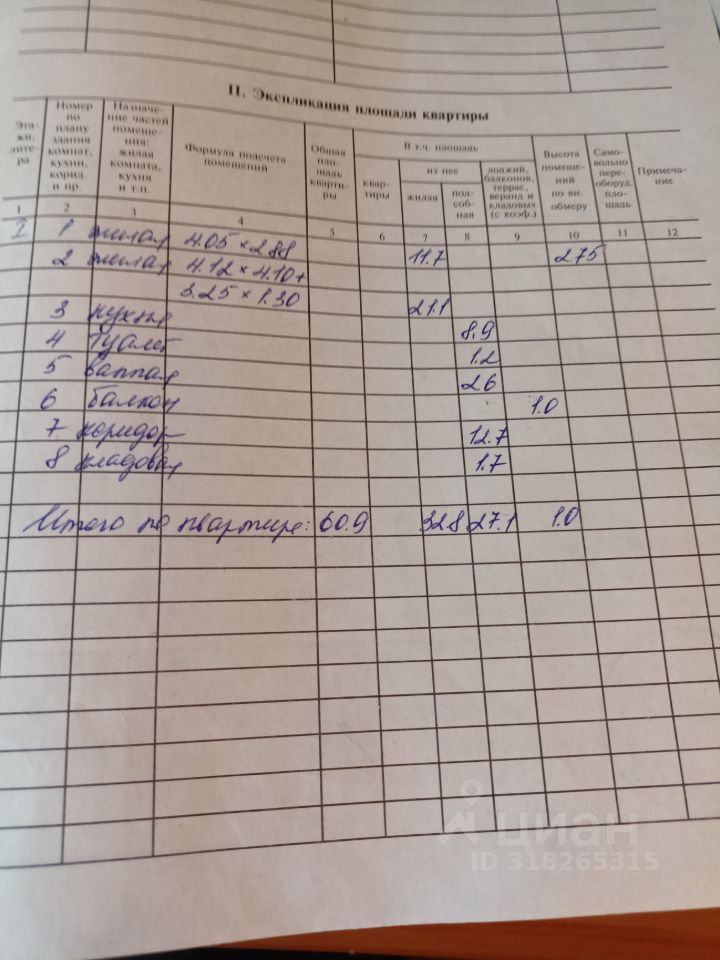 II. Экспликация площади квартиры
Эта-
жи,
лите-
ра
Номер
по
плану
здания
комнат,
кухни,
корид.
и пр.
Назначе-
ние частей
помеще-
ния:
жилая
комната,
кухня
и т.п.
Формула подсчета
помещений
Общая
пло-
щадь
кварти-
ры
В т.ч. площадь
квар-
тиры
из нее
жилая
под-
соб-
ная
лоджий,
балконов,
террас,
веранд и
кладовых
(с коэф.)
Высота
помеще-
ний
по вн.
обмеру
Само-
вольно
пере-
оборуд.
пло-
щадь
Примеча-
ние
1 2 3 4 5 6 7 8 9 10 11 12
I 1 жилая 4.05 × 2.88 11.7 2.75
2 жилая 4.12 × 4.10 +
3.25 × 1.30 21.1
3 кухня 8.9
4 туалет 1.2
5 ванная 2.6
6 балкон 1.0
7 коридор 12.7
8 кладовая 1.7
Итого по квартире: 60.9 32.8 27.1 1.0
циан
ID 318265315